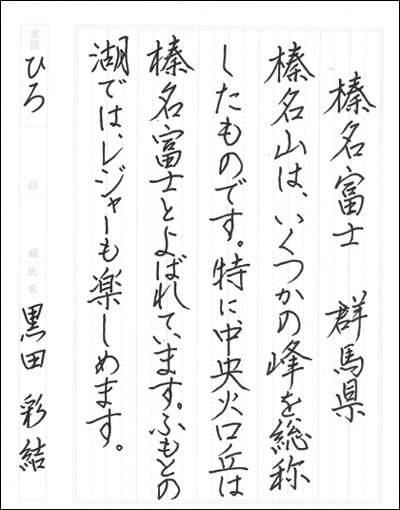 榛名富士　群馬県
榛名山は、いくつかの峰を総称
したものです。特に、中央火口丘は
榛名富士とよばれています。ふもとの
湖では、レジャーも楽しめます。
支部 ひろ 段 級 氏名 黒田 彩結